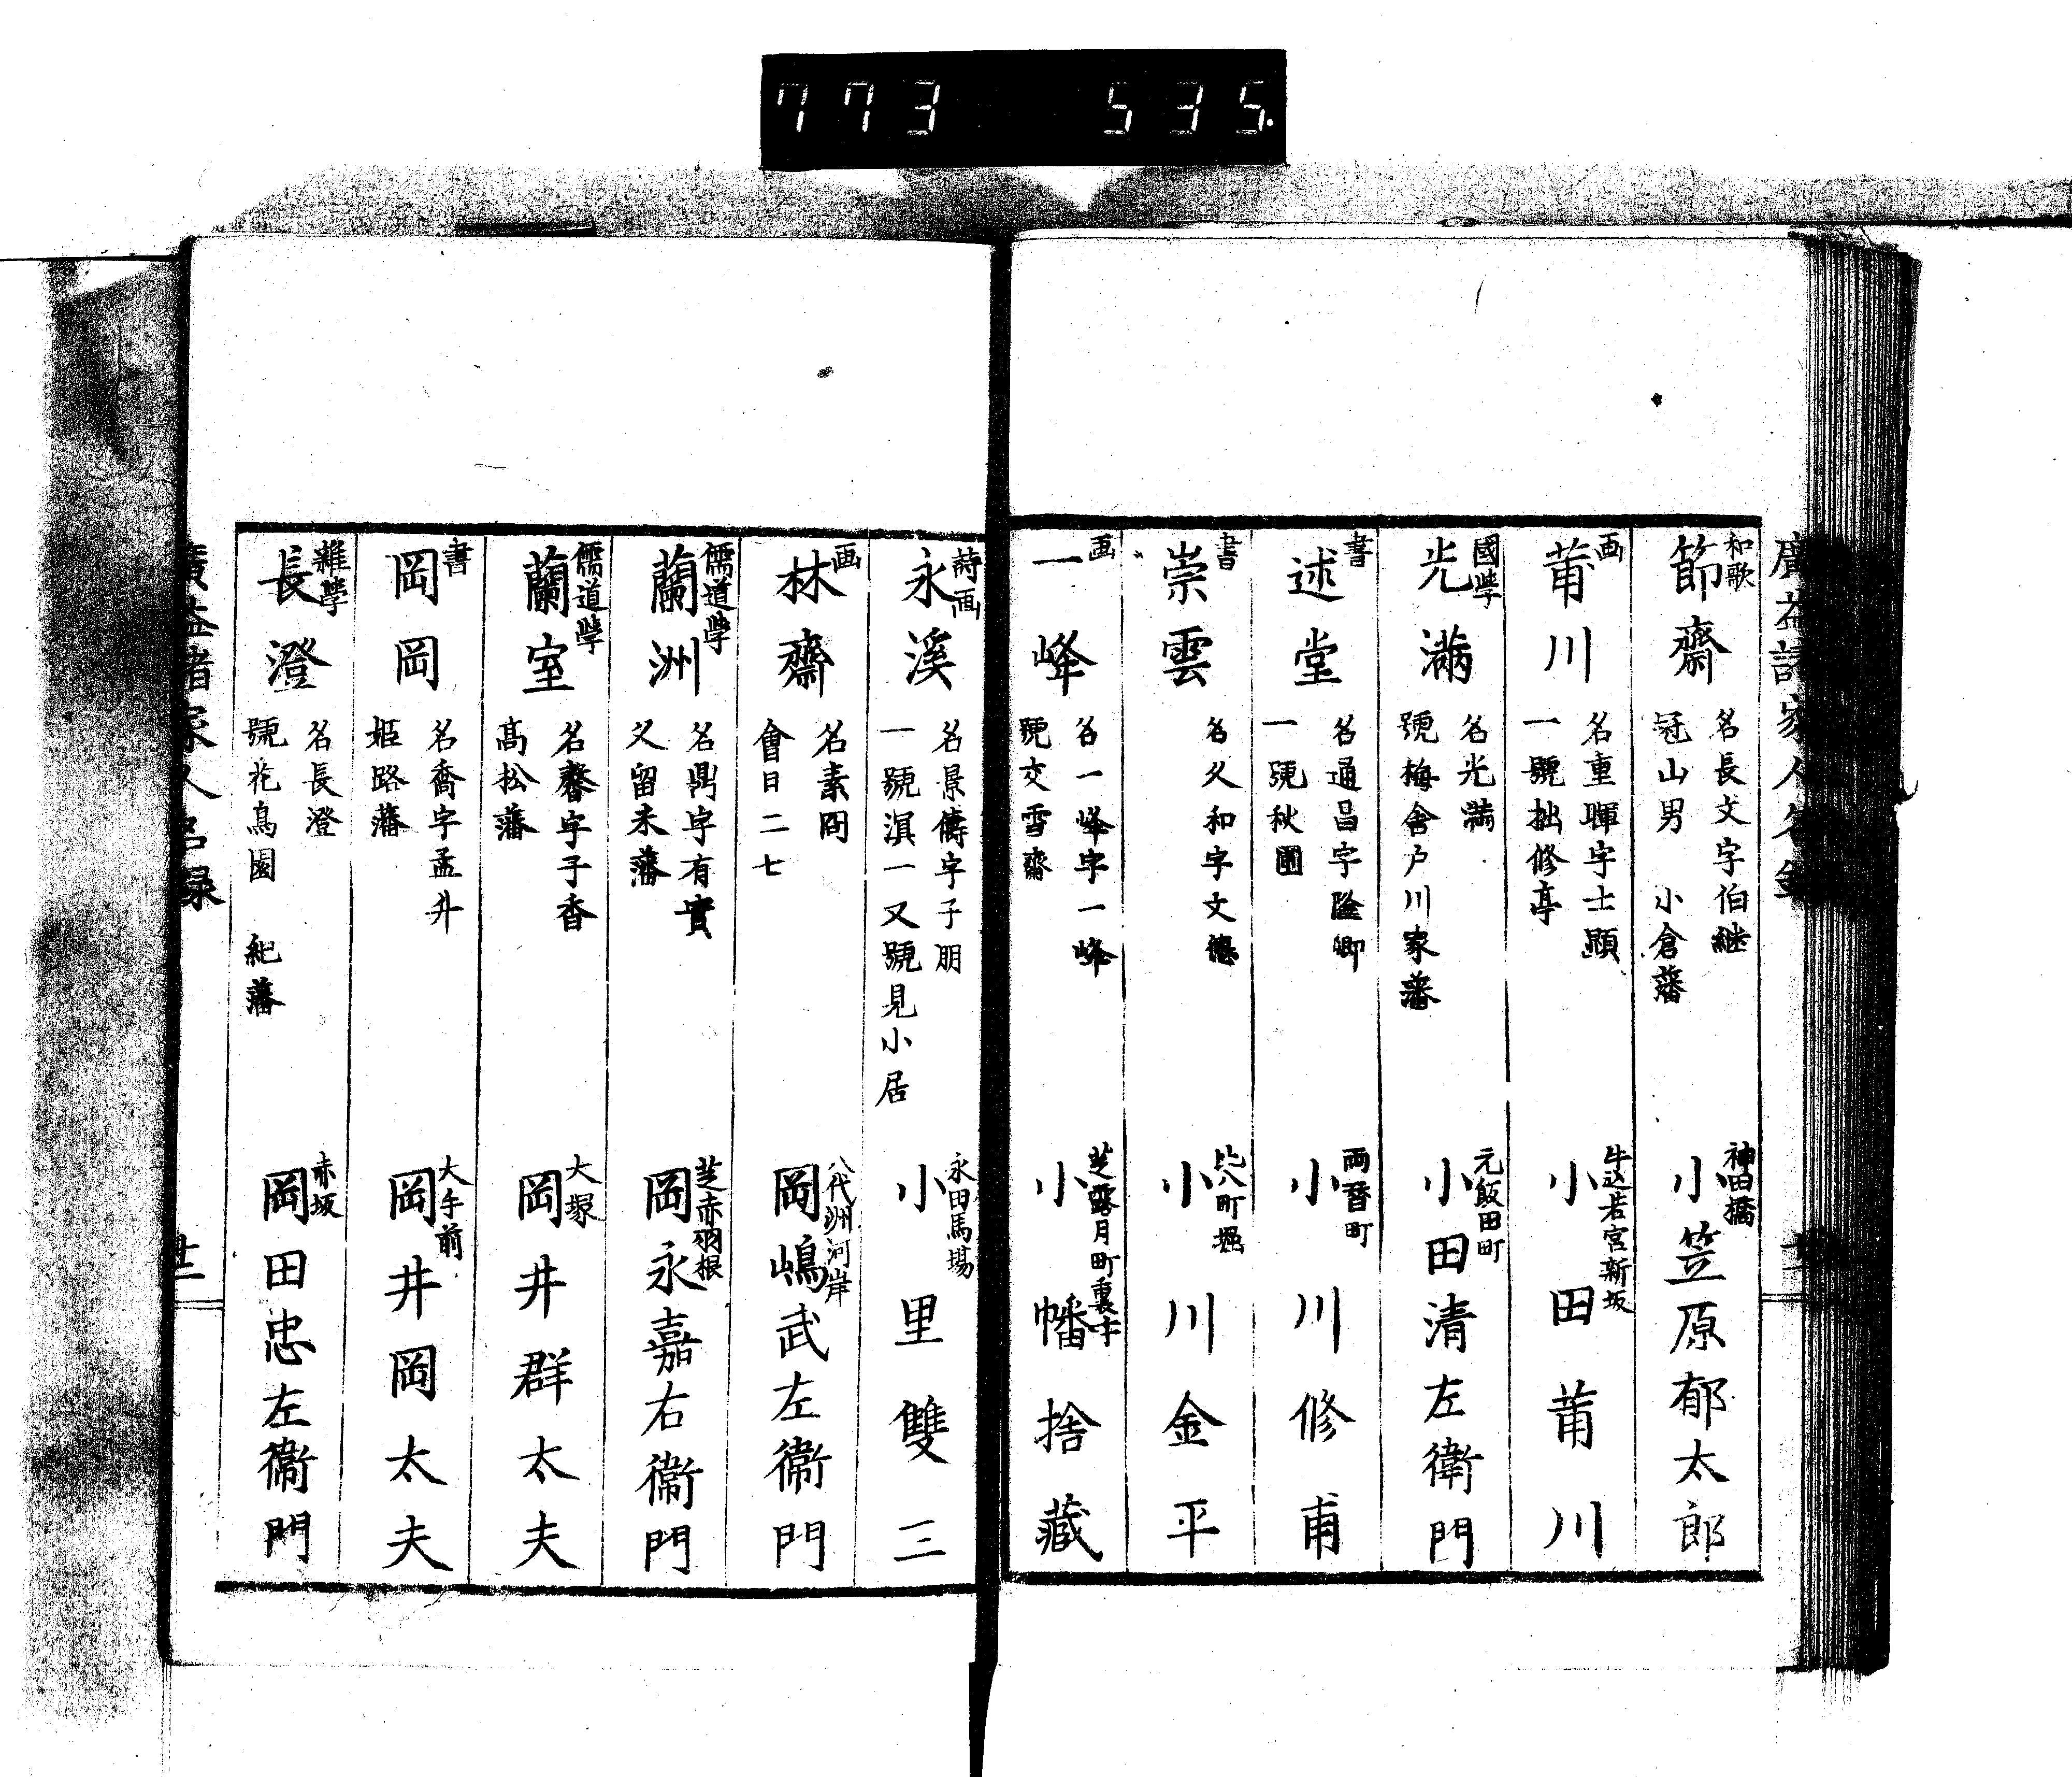 773 535.
廣益諸家人名錄
和歌
節齋
名長文字伯継
冠山男 小倉藩
神田橋
小笠原郁太郎
画
莆川
名重暉字士顕
一號拙修亭
牛込若宮新坂
小田莆川
國學
光滿
名光滿
號梅舍戶川家藩
元飯田町
小田清左衛門
書
述堂
名通昌字隆卿
一號秋圃
両替町
小川修甫
書
崇雲
名久和字文德
北八町堀
小川金平
画
一峰
名一峰字一峰
號交雪齋
芝露月町裏
小幡捨藏
詩画
永溪
名景儔字子朋
一號淇一又號見小居
永田馬場
小里雙三
画
林齋
名素問
會日二七
八代洲河岸
岡嶋武左衞門
儒道學
蘭洲
名鼎字有實
久留米藩
芝赤羽根
岡永嘉右衞門
儒道學
蘭室
名馨字子香
高松藩
大塚
岡井群太夫
書
岡岡
名喬字孟升
姫路藩
大手前
岡井岡太夫
雜學
長澄
名長澄
號花鳥園 紀藩
赤坂
岡田忠左衞門
廣益諸家人名録
廿二